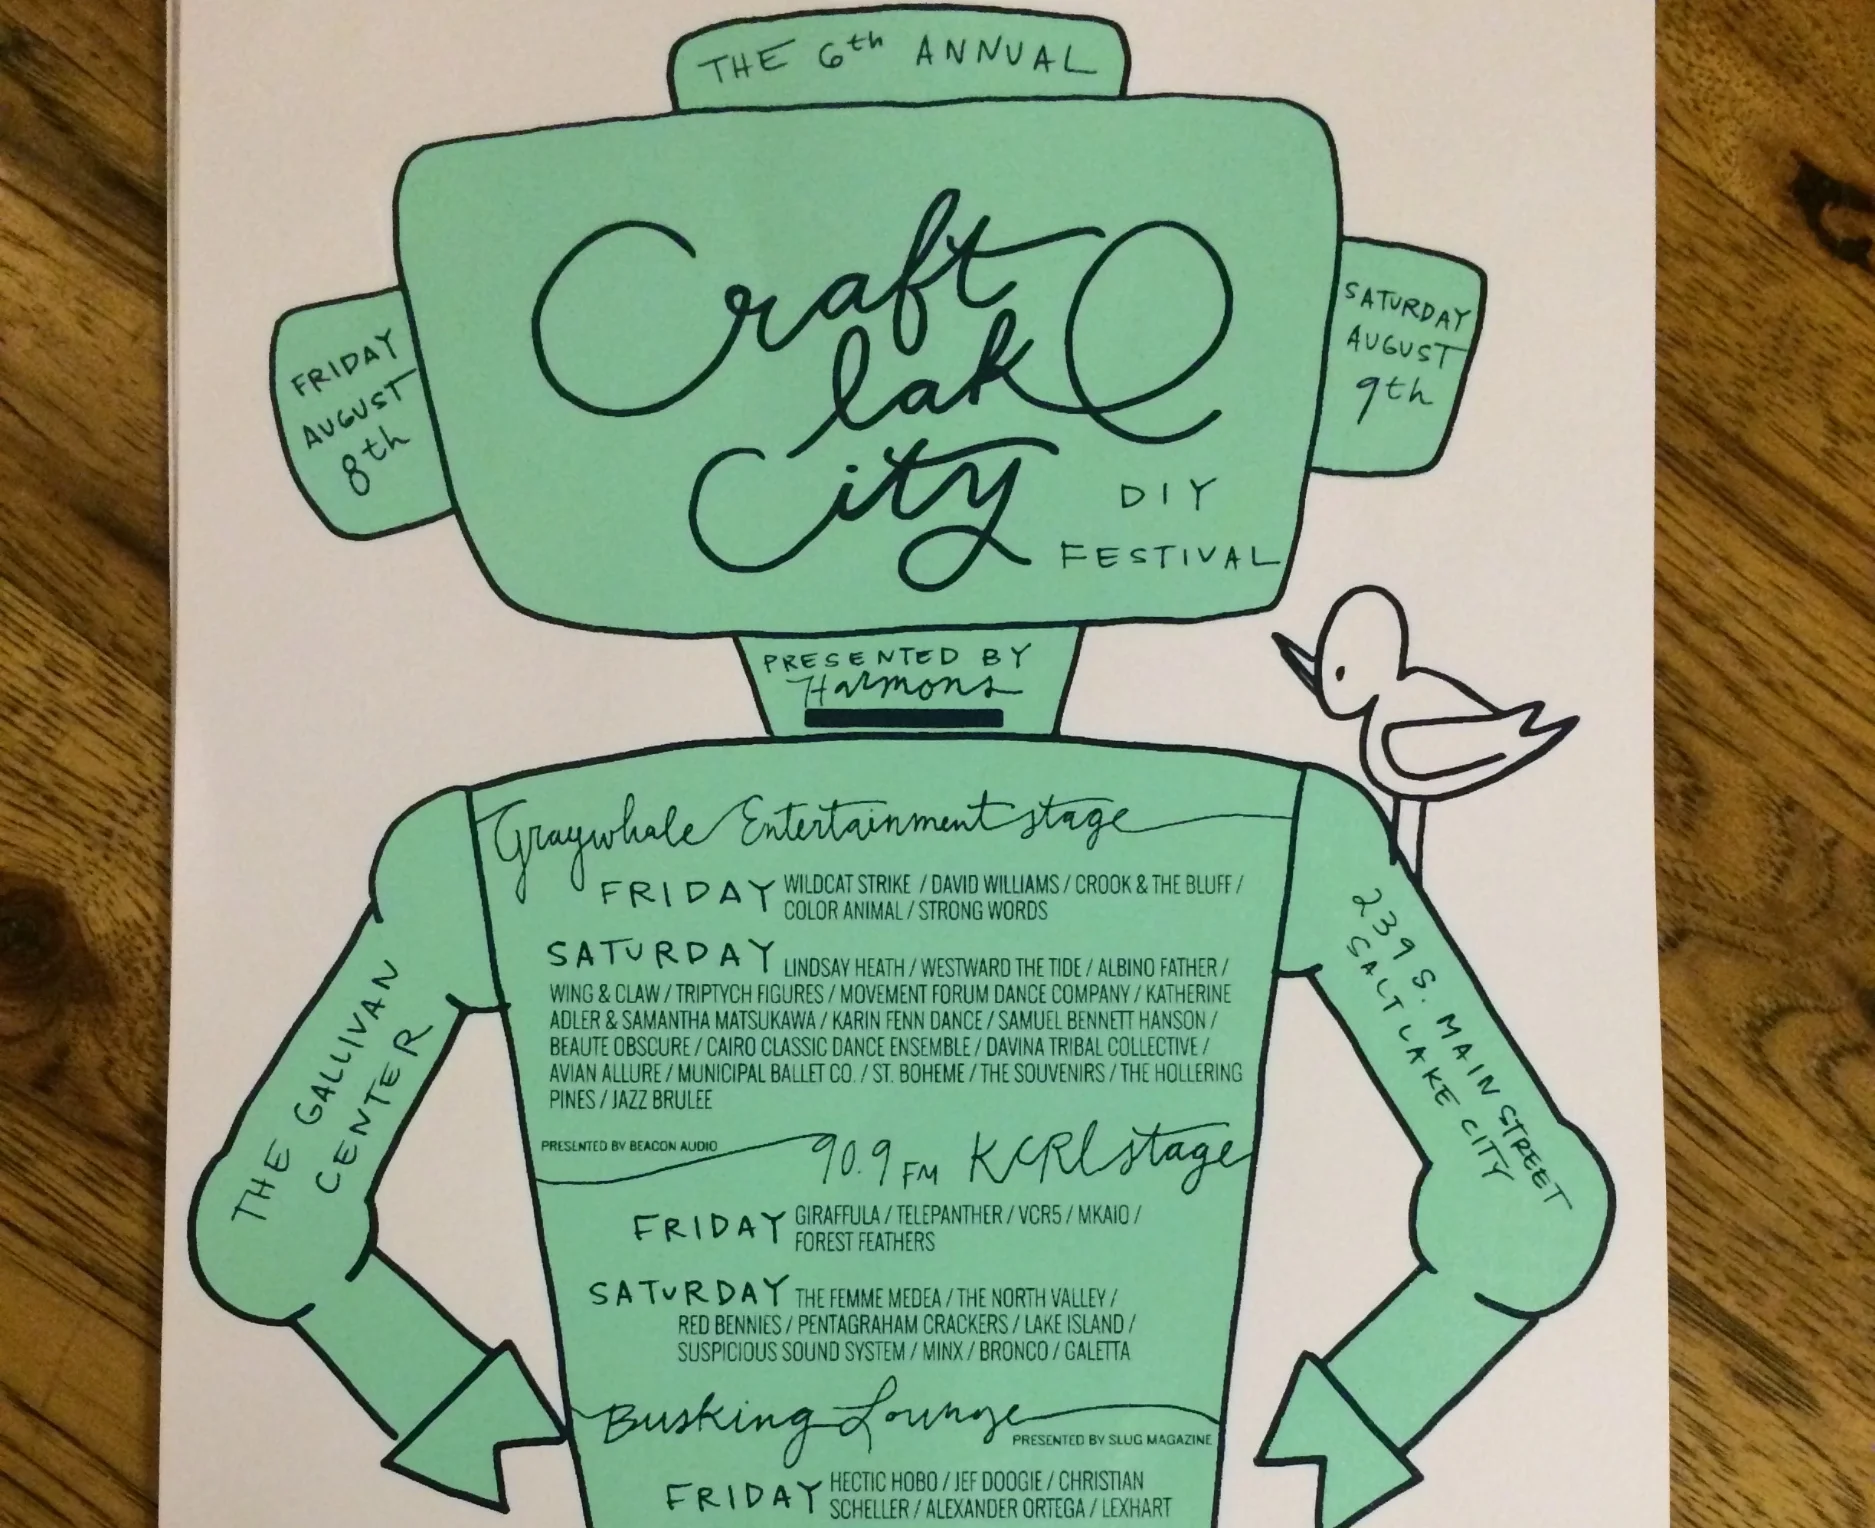 THE 6th ANNUAL
Craft
lake
City
DIY
FESTIVAL
FRIDAY
AUGUST
8th
SATURDAY
AUGUST
9th
PRESENTED BY
Harmons
Graywhale Entertainment stage
FRIDAY WILDCAT STRIKE / DAVID WILLIAMS / CROOK & THE BLUFF /
COLOR ANIMAL / STRONG WORDS
SATURDAY LINDSAY HEATH / WESTWARD THE TIDE / ALBINO FATHER /
WING & CLAW / TRIPTYCH FIGURES / MOVEMENT FORUM DANCE COMPANY / KATHERINE
ADLER & SAMANTHA MATSUKAWA / KARIN FENN DANCE / SAMUEL BENNETT HANSON /
BEAUTE OBSCURE / CAIRO CLASSIC DANCE ENSEMBLE / DAVINA TRIBAL COLLECTIVE /
AVIAN ALLURE / MUNICIPAL BALLET CO. / ST. BOHEME / THE SOUVENIRS / THE HOLLERING
PINES / JAZZ BRULEE
PRESENTED BY BEACON AUDIO
90.9 FM KCRL stage
FRIDAY GIRAFFULA / TELEPANTHER / VCR5 / MKAIO /
FOREST FEATHERS
SATURDAY THE FEMME MEDEA / THE NORTH VALLEY /
RED BENNIES / PENTAGRAHAM CRACKERS / LAKE ISLAND /
SUSPICIOUS SOUND SYSTEM / MINX / BRONCO / GALETTA
Busking Lounge
PRESENTED BY SLUG MAGAZINE
FRIDAY HECTIC HOBO / JEF DOOGIE / CHRISTIAN
SCHELLER / ALEXANDER ORTEGA / LEXHART
THE GALLIVAN
CENTER
239 S. MAIN STREET
SALT LAKE CITY